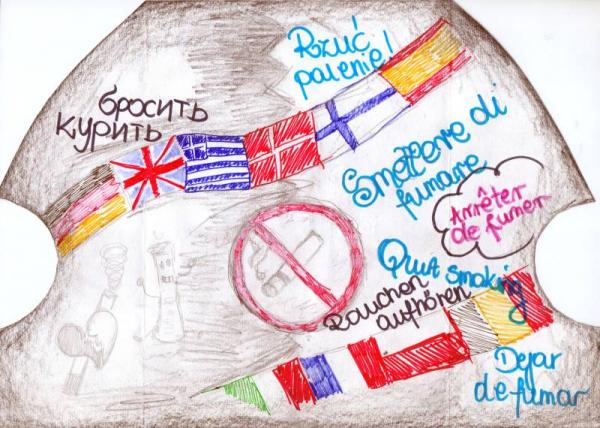 Rzuć
palenie!
бросить
курить
Smettere di
fumare
Arrêter
de fumer
Quit smoking
Rauchen
aufhören
Dejar
de fumar